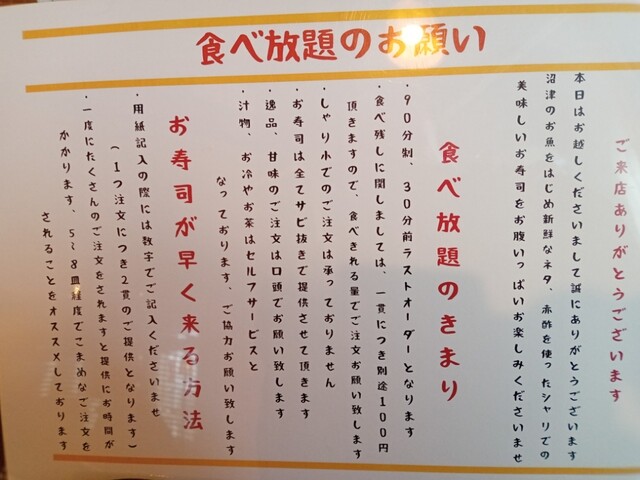 食べ放題のお願い
ご来店ありがとうございます
本日はお越しくださいまして誠にありがとうございます
沼津のお魚をはじめ新鮮なネタ、赤酢を使ったシャリでの
美味しいお寿司をお腹いっぱいお楽しみくださいませ
食べ放題のきまり
・90分制、30分前ラストオーダーとなります
・食べ残しに関しましては、一貫につき別途100円
頂きますので、食べきれる量でご注文お願い致します
・しゃり小でのご注文は承っておりません
・お寿司は全てサビ抜きで提供させて頂きます
・逸品、甘味のご注文は口頭でお願い致します
・汁物、お冷やお茶はセルフサービスと
なっております、ご協力お願い致します
お寿司が早く来る方法
・用紙記入の際には数字でご記入くださいませ
(1つ注文につき2貫のご提供となります)
・一度にたくさんのご注文をされますと提供にお時間が
かかります、5~8皿程度でこまめなご注文を
されることをオススメしております